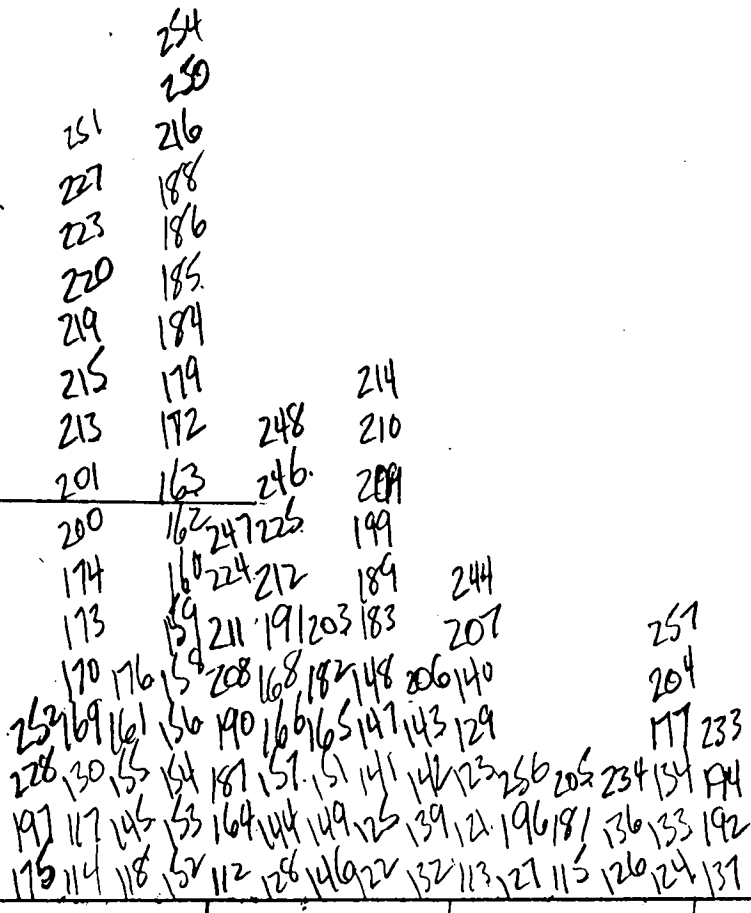 254
250
251 216
227 188
223 186
220 185
219 184
215 179 214
213 172 248 210
201 163 246 209
200 162 247 225 199
174 160 224 212 189 244
173 159 211 191 203 183 207 257
170 176 158 208 168 182 148 206 140 204
252 169 161 156 190 166 165 147 143 129 177 233
228 130 155 154 187 157 151 141 142 123 256 205 234 134 194
197 117 145 153 164 144 149 125 139 121 196 181 136 133 192
175 114 118 152 112 128 146 122 132 113 127 115 126 124 137